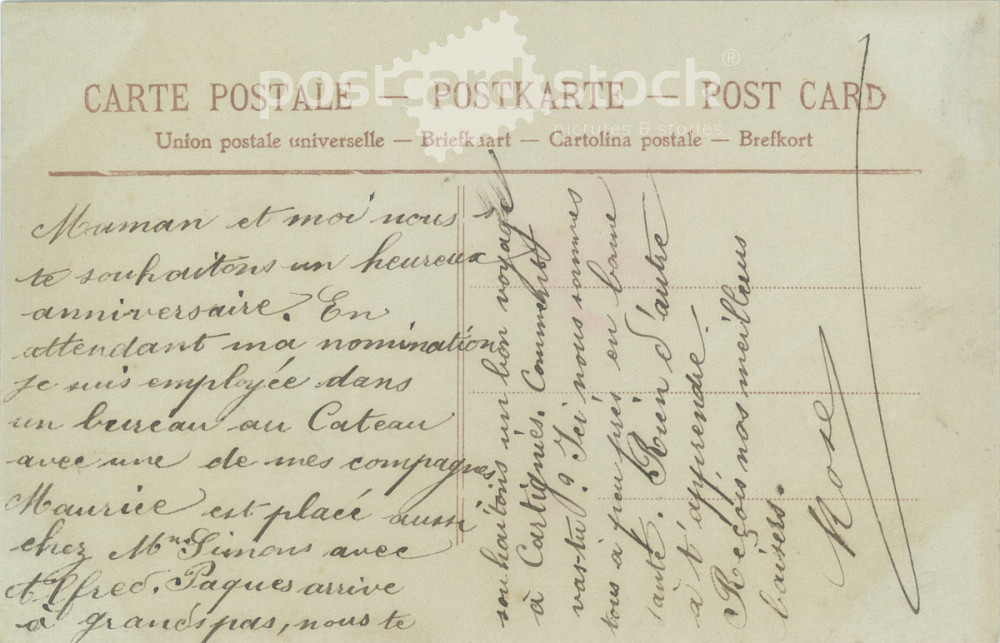 postcard stoch®
pictures & stories
CARTE POSTALE — POSTKARTE — POST CARD
Union postale universelle — Briefkaart — Cartolina postale — Brefkort
Maman et moi nous
te souhaitons un heureux
anniversaire. En
attendant ma nomination
je suis employée dans
un bureau au Cateau
avec une de mes compagnes
Maurice est placé aussi
chez Mr Simons avec
Alfred. Paques arrive
à grands pas, nous te
souhaitons un bon voyage
à Cartignies. Comment
vas-tu? Ici nous sommes
tous à peu près en bonne
santé. Rien d'autre
à t'apprendre.
Reçois nos meilleurs
baisers.
Rose